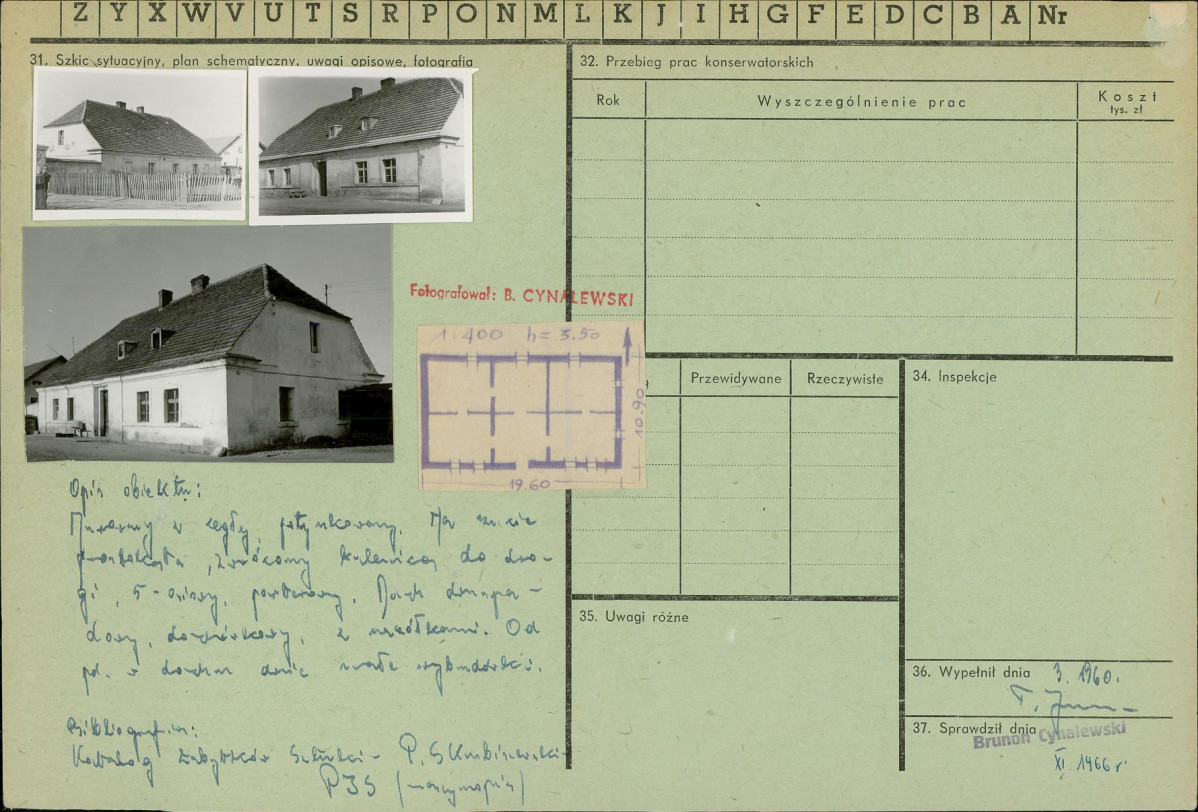 Z Y X W V U T S R P O N M L K J I H G F E D C B A Nr
31. Szkic sytuacyjny, plan schematyczny, uwagi opisowe, fotografia
Fotografował: B. CYNALEWSKI
1:400 h= 3.50
10.90
19.60
Opis obiektu:
Murowany z cegły, potynkowany. Na rzucie
prostokąta, zwrócony kalenicą do dro-
gi, 5-osiowy, parterowy. Dach dwuspa-
dowy, dachówkowy, z naczółkami. Od
pd. w dachu dwie małe wybudówki.
Bibliografia:
Katalog Zabytków Sztuki - P. Skubiszewski -
PIS (maszynopis)
32. Przebieg prac konserwatorskich
Rok
Wyszczególnienie prac
Koszt
tys. zł
Przewidywane
Rzeczywiste
34. Inspekcje
35. Uwagi różne
36. Wypełnił dnia 3. 1960.
37. Sprawdził dnia
Brunon Cynalewski
XI 1966 r